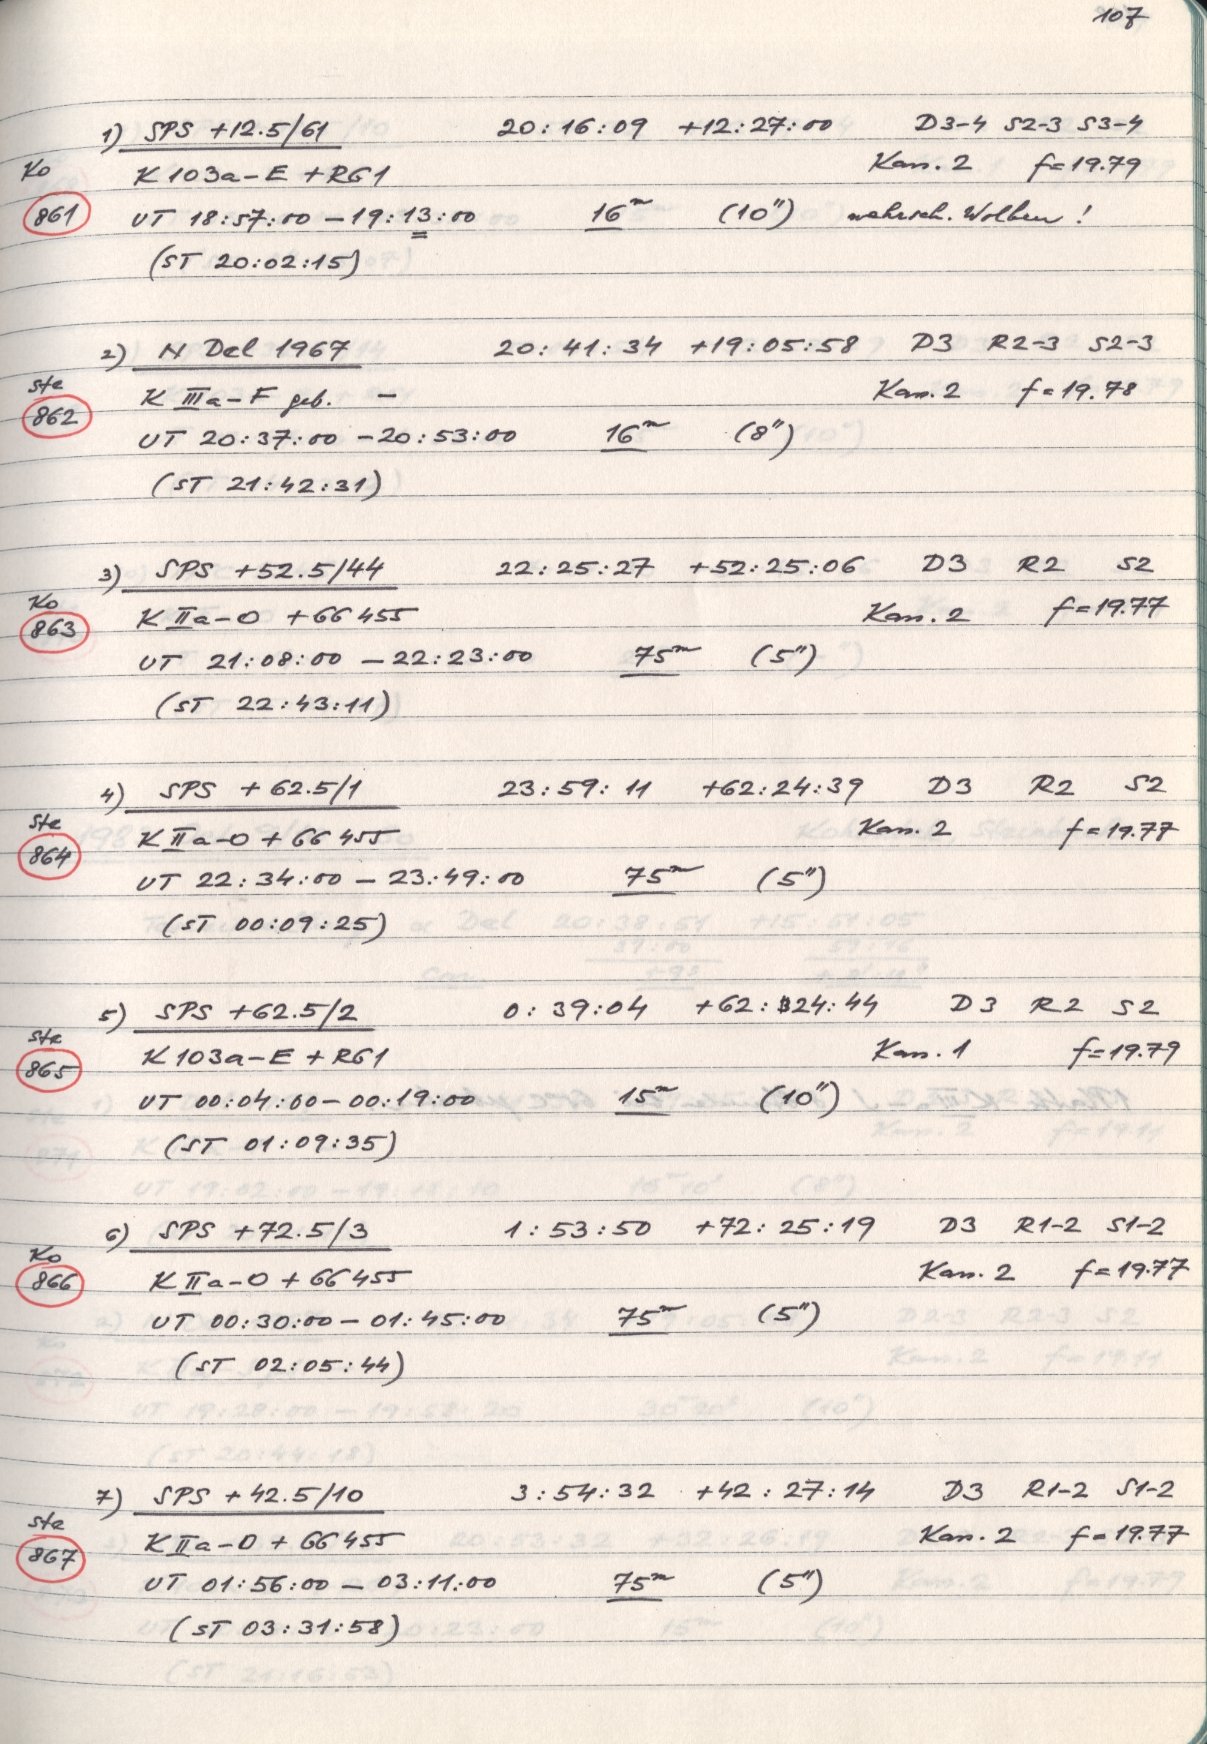 107
1) SPS +12.5/61 20:16:09 +12:27:00 D3-4 S2-3 S3-4
Ko K 103a-E + RG1 Kas. 2 f=19.79
861 UT 18:57:00 - 19:13:00 16m (10") wahrsch. Wolken!
(ST 20:02:15)
2) N Del 1967 20:41:34 +19:05:58 D3 R2-3 S2-3
Ste K IIIa-F geb. - Kas. 2 f=19.78
862 UT 20:37:00 - 20:53:00 16m (8")
(ST 21:42:31)
3) SPS +52.5/44 22:25:27 +52:25:06 D3 R2 S2
Ko K IIa-O + GG 455 Kas. 2 f=19.77
863 UT 21:08:00 - 22:23:00 75m (5")
(ST 22:43:11)
4) SPS +62.5/1 23:59:11 +62:24:39 D3 R2 S2
Ste K IIa-O + GG 455 Kas. 2 f=19.77
864 UT 22:34:00 - 23:49:00 75m (5")
(ST 00:09:25)
5) SPS +62.5/2 0:39:04 +62:24:44 D3 R2 S2
Ste K 103a-E + RG1 Kas. 1 f=19.79
865 UT 00:04:00 - 00:19:00 15m (10")
(ST 01:09:35)
6) SPS +72.5/3 1:53:50 +72:25:19 D3 R1-2 S1-2
Ko K IIa-O + GG 455 Kas. 2 f=19.77
866 UT 00:30:00 - 01:45:00 75m (5")
(ST 02:05:44)
7) SPS +42.5/10 3:54:32 +42:27:14 D3 R1-2 S1-2
Ste K IIa-O + GG 455 Kas. 2 f=19.77
867 UT 01:56:00 - 03:11:00 75m (5")
(ST 03:31:58)